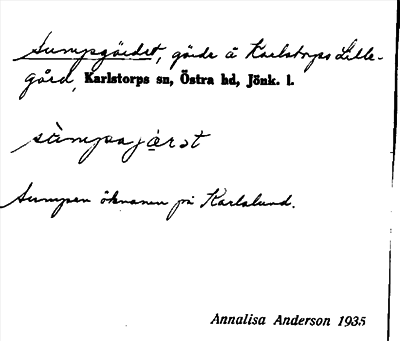 Sumpgärdet, gärde å Karlstorps Lille-
gård, Karlstorps sn, Östra hd, Jönk. l.
sùmpajærət
Sumpen öknamn på Karlslund.
Annalisa Anderson 1935